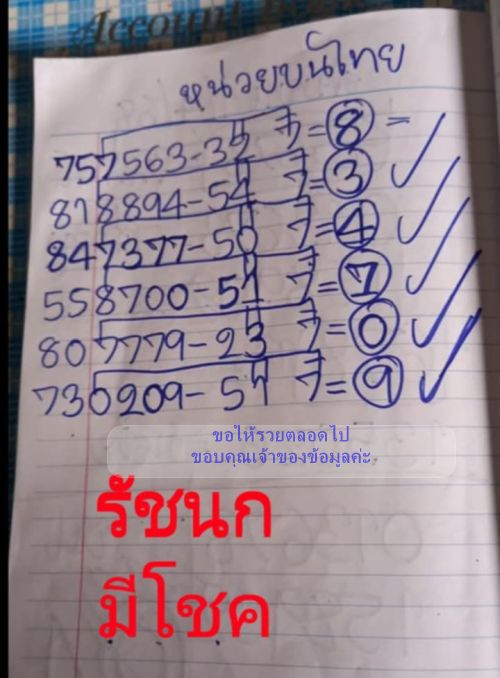 Account
หน่วยบนไทย
757563-35 7=8=
818894-54 7=3
847377-50 7=4
558700-51 7=7
807779-23 7=0
730209-57 7=9
ขอให้รวยตลอดไป
ขอบคุณเจ้าของข้อมูลค่ะ
รัชนก
มีโชค